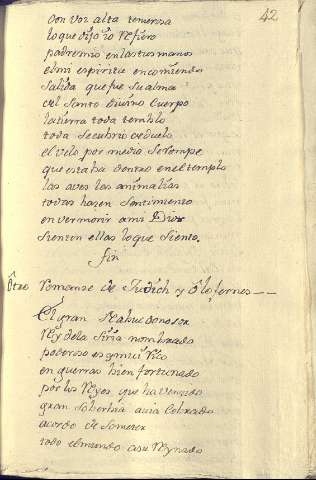 42
con voz alta temerosa
lo que dijo io refiero
padre mio en las tus manos
el mi espiritu encomiendo
salida que fue su alma
del santo divino cuerpo
la tierra toda temblo
toda se cubrio de duelo
el velo por medio se rompe
que estaba dentro en el templo
las aves los animalias
todas hazen sentimiento
en ver morir a mi Dios
sienten ellas lo que siento.
fin
Otro Romanse de Judich y Olofernes
El gran Nabucdonosor
Rey de la siria nombrado
poderoso es y mui rico
en guerras bien fortunado
por los Reyes que ha vensido
gran soberbia avia cobrado
acordo de someter
todo el mundo a su Reynado